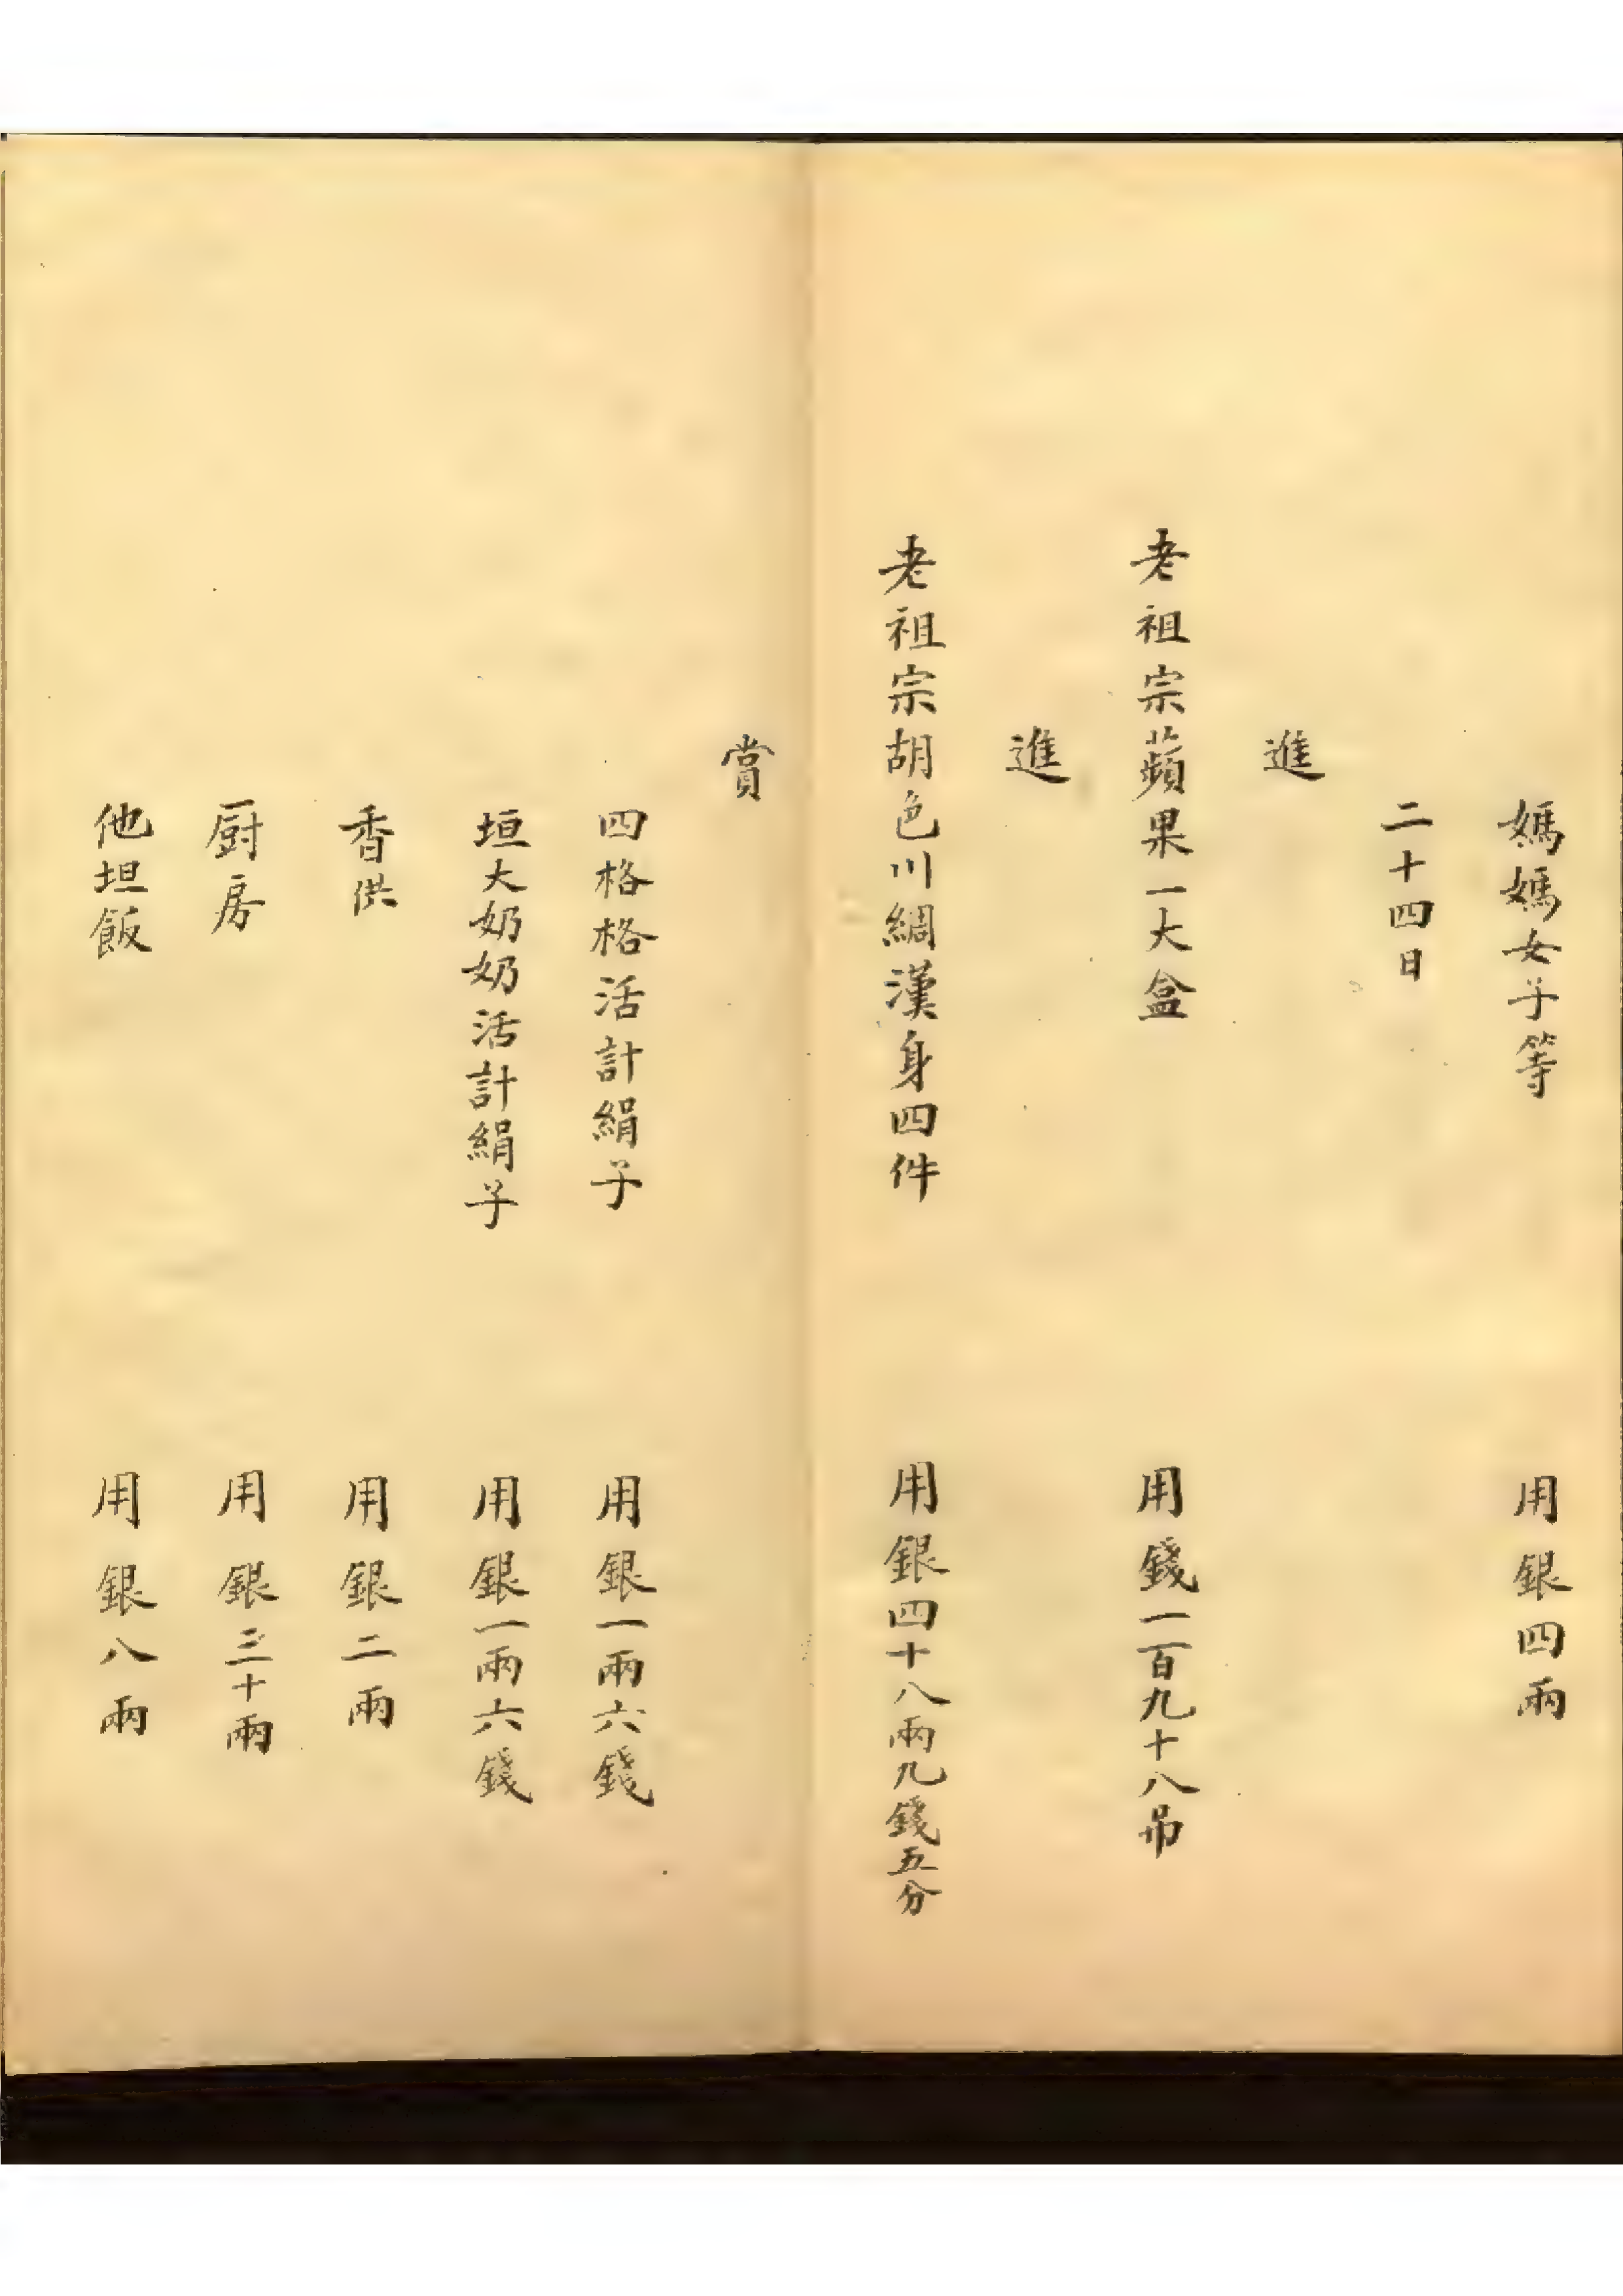 媽媽女子等 用銀四兩
二十四日
進
老祖宗蘋果一大盒 用錢一百九十八吊
進
老祖宗胡色川綢漢身四件 用銀四十八兩九錢五分
賞
四格格活計絹子 用銀一兩六錢
垣大奶奶活計絹子 用銀一兩六錢
香供 用銀二兩
厨房 用銀三十兩
他坦飯 用銀八兩